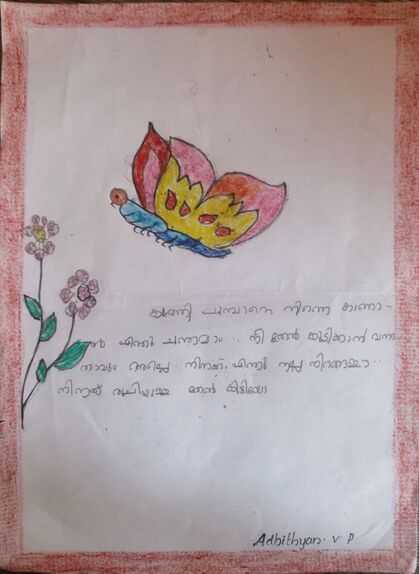 കുഞ്ഞി പൂമ്പാറ്റെ നിന്നെ കാണാ-
ൻ എന്തു ചന്തമാ.. നീ തേൻ കുടിക്കാൻ വന്ന
താവും അല്ലെ. നിനക്ക് എന്തു നല്ല നിറങ്ങളാ..
നിനക്ക് രുചിയുള്ള തേൻ കിട്ടിയോ
Adhithyan. V. P